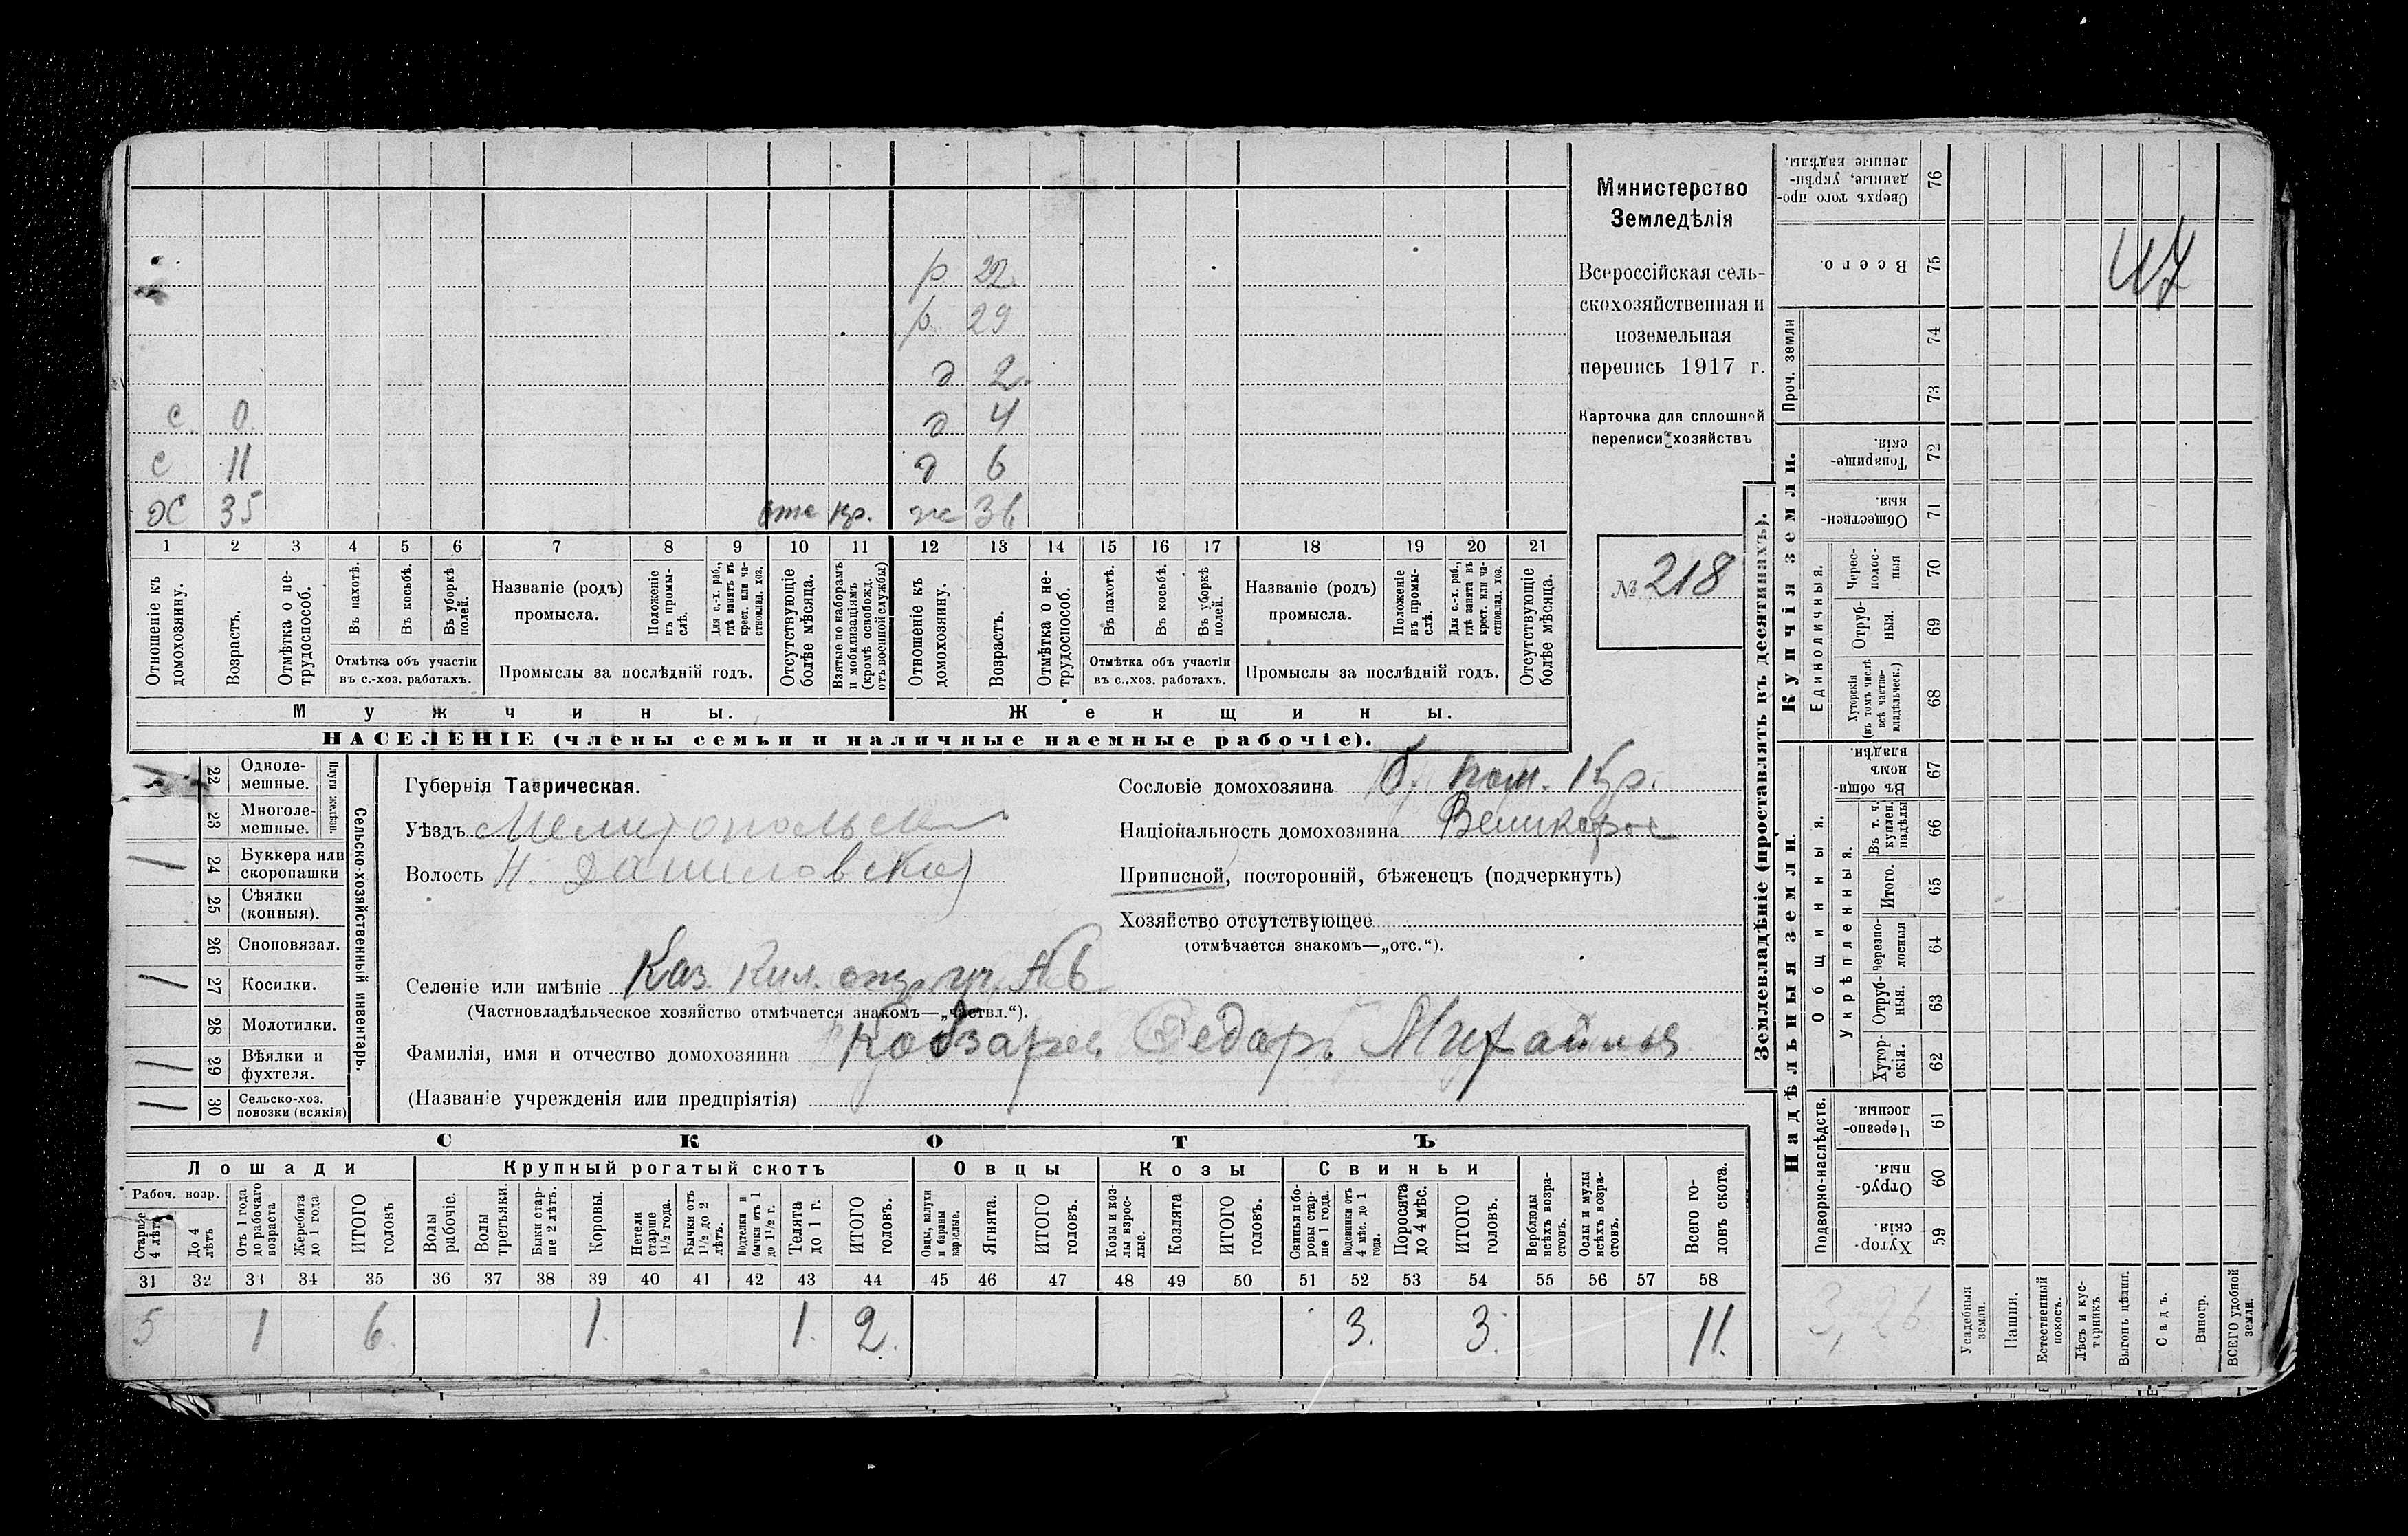 р 22.
р 29
д 2.
с 0. д 4
с 11 д 6
35 36
1 2 3 4 5 6 7 8 9 10 11 12 13 14 15 16 17 18 19 20 21
Отношеніе къ домохозяину.
Возрастъ.
Отмѣтка о не-
трудоспособ.
Въ пахотѣ.
Въ косьбѣ.
Въ уборкѣ полей.
Отмѣтка объ участіи
въ с.-хоз. работахъ.
Названіе (родъ)
промысла.
Положеніе въ промы-
слѣ.
Для с.-х. раб.,
гдѣ занятъ въ
крест. или ча-
стновлад. хоз.
Промыслы за послѣдній годъ.
Отсутствующіе
болѣе мѣсяца.
Взятые по наборамъ
и мобилизаціямъ
(кромѣ освобожд.
отъ военной службы)
Отношеніе къ домохозяину.
Возрастъ.
Отмѣтка о не-
трудоспособ.
Въ пахотѣ.
Въ косьбѣ.
Въ уборкѣ полей.
Отмѣтка объ участіи
въ с.-хоз. работахъ.
Названіе (родъ)
промысла.
Положеніе въ промы-
слѣ.
Для с.-х. раб.,
гдѣ занята въ
крест. или ча-
стновлад. хоз.
Промыслы за послѣдній годъ.
Отсутствующіе
болѣе мѣсяца.
Мужчины. Женщины.
НАСЕЛЕНІЕ (члены семьи и наличные наемные рабочіе).
Министерство
Земледѣлія
Всероссійская сель-
скохозяйственная и
поземельная
перепись 1917 г.
Карточка для сплошной
переписи хозяйствъ
№ 218
22 Одноле-
мешные.
23 Многоле-
мешные.
Плуги желѣзн.
24 Буккера или
скоропашки
25 Сѣялки
(конныя).
26 Сноповязал.
27 Косилки.
28 Молотилки.
29 Вѣялки и
фухтеля.
30 Сельско-хоз.
повозки (всякія)
Сельско-хозяйственный инвентарь.
Губернія Таврическая.
Уѣздъ Мелитопольск
Волость Н. Даниловская
Селеніе или имѣніе Каз.
(Частновладѣльческое хозяйство отмѣчается знакомъ—„частвл.“).
Фамилія, имя и отчество домохозяина Кобзарев Федоръ Михайлов
(Названіе учрежденія или предпріятія)
Сословіе домохозяина б. пом. кр.
Національность домохозяина Великорос
Приписной, посторонній, бѣженецъ (подчеркнуть)
Хозяйство отсутствующее
(отмѣчается знакомъ—„отс.“).
СКОТЪ
Лошади Крупный рогатый скотъ Овцы Козы Свиньи
Рабоч. возр.
Старше 4 лѣтъ
До 4 лѣтъ
Отъ 1 года
до рабочаго
возраста
Жеребята
до 1 года
ИТОГО
головъ
Волы
рабочіе.
Волы
третьяки.
Быки стар-
ше 2 лѣтъ.
Коровы.
Нетели
старше
1½ года.
Бычки отъ
1½ до 2
лѣтъ.
Подтелки и
бычки отъ 1
до 1½ г.
Телята
до 1 г.
ИТОГО
головъ.
Овцы, валухи
и бараны
взрослые.
Ягнята.
ИТОГО
головъ.
Козы и коз-
лы взрос-
лые.
Козлята
ИТОГО
головъ.
Свиньи и бо-
ровы стар-
ше 1 года.
Подсвинки отъ
4 мѣс. до 1
года.
Поросята
до 4 мѣс.
ИТОГО
головъ.
Верблюды
всѣхъ возра-
стовъ.
Ослы и мулы
всѣхъ возра-
стовъ.
Всего го-
ловъ скота.
31 32 33 34 35 36 37 38 39 40 41 42 43 44 45 46 47 48 49 50 51 52 53 54 55 56 57 58
5 1 6. 1. 1. 2. 3. 3. 11.
Землевладѣніе (проставлять въ десятинахъ).
Надѣльныя земли. Купчія земли.
Подворно-наслѣдств.
Общинныя.
Укрѣпленныя.
Единоличныя.
Проч. земли
Хутор-
скія. 59
Отруб-
ныя. 60
Черезпо-
лосныя. 61
Хутор-
скія. 62
Отруб-
ныя. 63
Черезпо-
лосныя 64
Итого. 65
Въ т. ч.
куплен.
надѣлы 66
Въ общин-
номъ
владѣн. 67
Хуторскія
(въ томъ числѣ
всѣ частно-
владѣльческ.) 68
Отруб-
ныя. 69
Черес-
полос-
ныя 70
Обществен-
ныя. 71
Товарище-
скія. 72
73
74
Всего. 75
Сверхъ того про-
данные, укрѣп-
ленные надѣлы. 76
47
3,26
Усадебныя
земли.
Пашня.
Естественный
покосъ.
Лѣсъ и кус-
тарникъ.
Выгонъ цѣлин.
Садъ.
Виногр.
ВСЕГО удобной
земли.